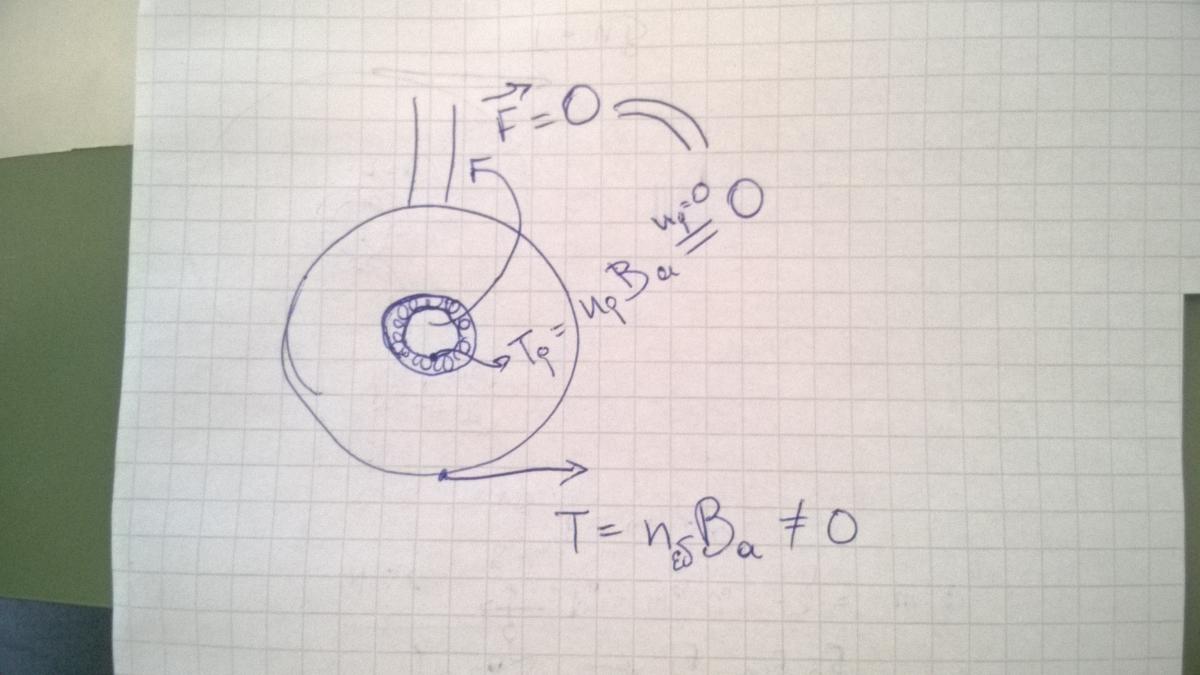 F⃗ = 0
n_φ=0
T_φ = n_φ B_a = 0
T = n_εδ B_a ≠ 0